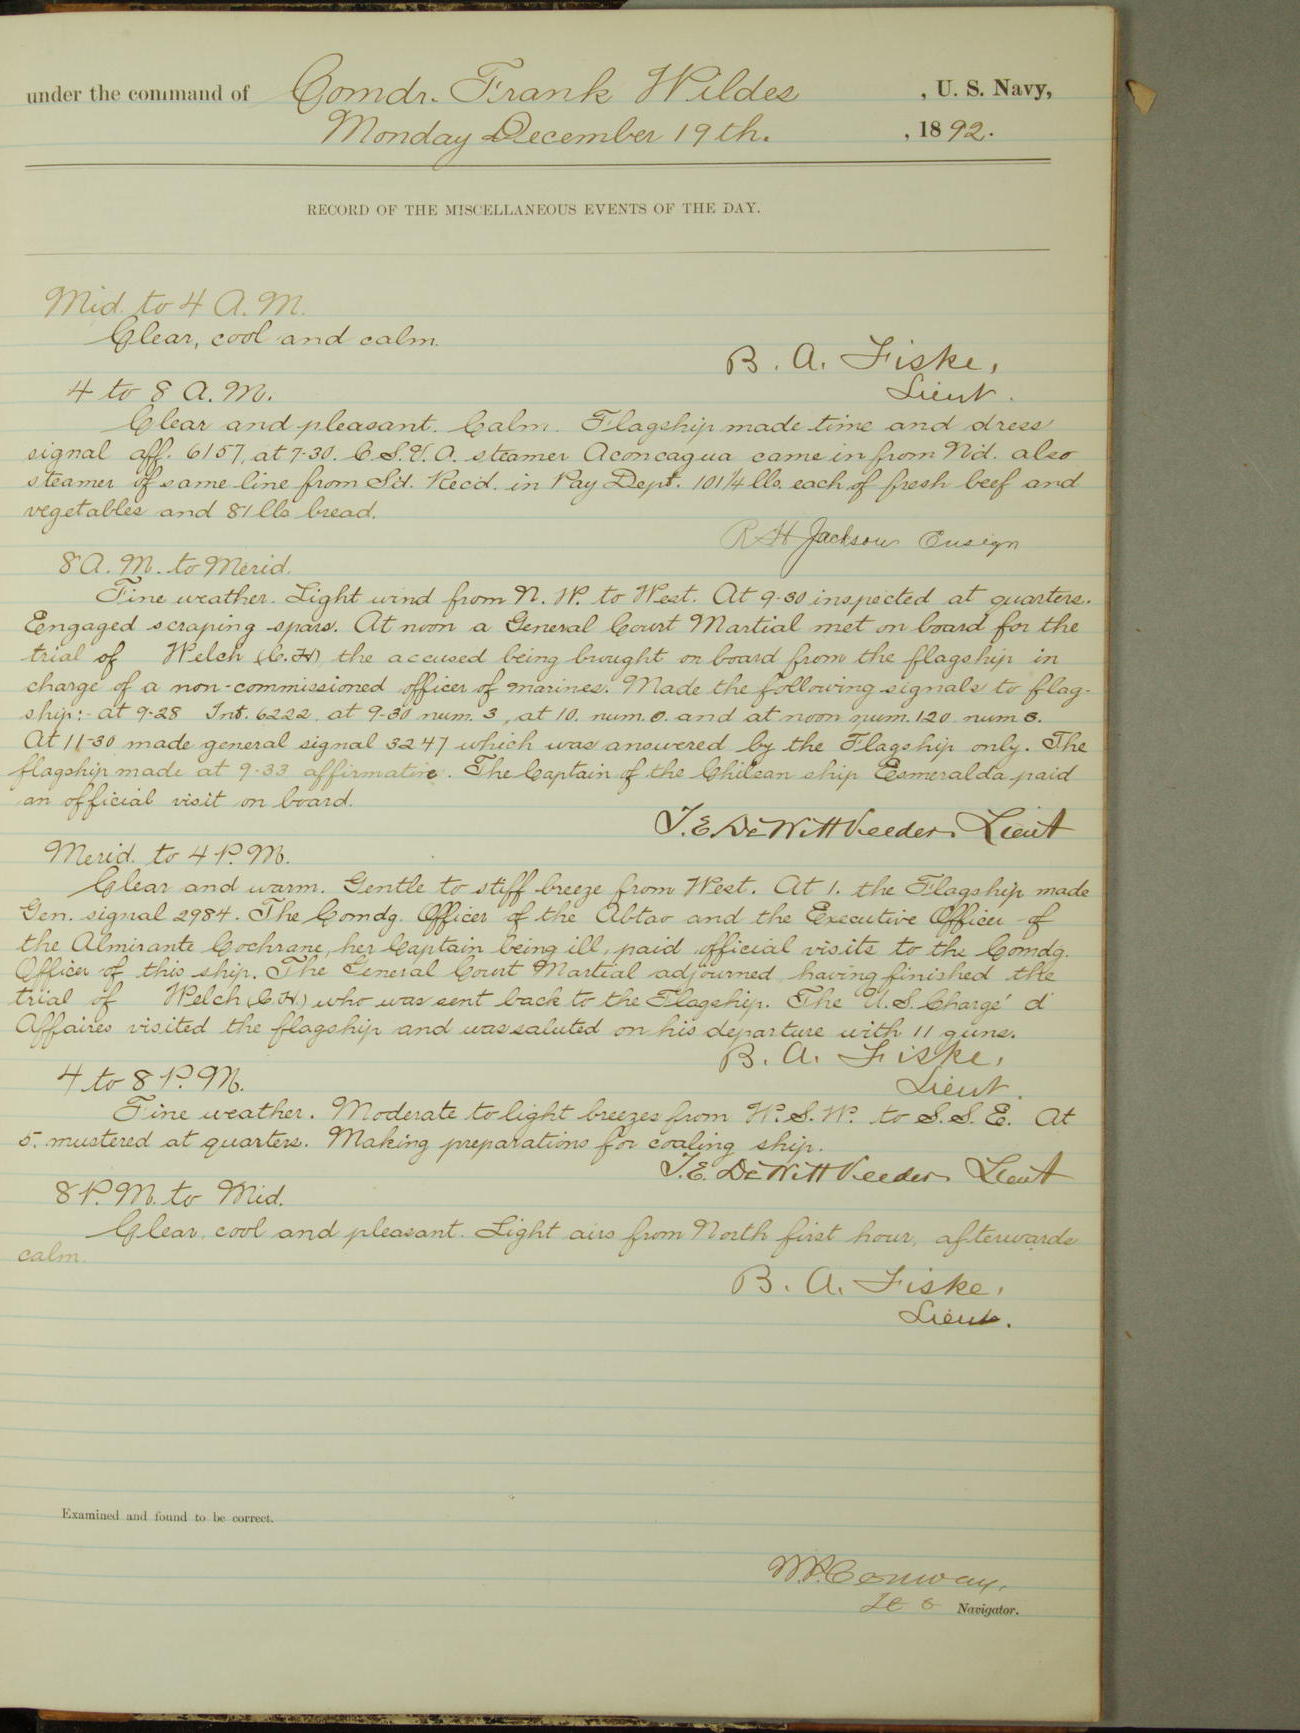 under the command of Comdr. Frank Wildes , U. S. Navy,
Monday December 19th. , 1892.
RECORD OF THE MISCELLANEOUS EVENTS OF THE DAY.
Mid. to 4 A.M.
Clear, cool and calm.
B. A. Fiske,
Lieut.
4 to 8 A.M.
Clear and pleasant. Calm. Flagship made time and dress
signal aff. 6157, at 7-30. C.S.V.A. steamer Aconcagua came in from N'd. also
steamer of same line from S'd. Recd. in Pay Dept. 101 1/4 lbs. each of fresh beef and
vegetables and 81 lbs bread.
R H Jackson Ensign
8 A. M. to Merid.
Fine weather. Light wind from N. W. to West. At 9-30 inspected at quarters.
Engaged scraping spars. At noon a General Court Martial met on board for the
trial of Welch (C.H) the accused being brought on board from the flagship in
charge of a non-commissioned officer of marines. Made the following signals to flag-
ship:- at 9-28 Int. 6222. at 9-30 num. 3, at 10. num. 0. and at noon num. 120 num 3.
At 11-30 made general signal 3247 which was answered by the Flagship only. The
flagship made at 9-33 affirmative. The Captain of the Chilean ship Esmeralda paid
an official visit on board.
T. E. DeWitt Veeder. Lieut
Merid. to 4 P. M.
Clear and warm. Gentle to stiff breeze from West. At 1. the Flagship made
Gen. signal 2984. The Comdg. Officer of the Abtao and the Executive Officer of
the Almirante Cochrane, her Captain being ill, paid official visits to the Comdg.
Officer of this ship. The General Court Martial adjourned having finished the
trial of Welch (C.H.) who was sent back to the Flagship. The U.S. Chargé d'
Affaires visited the flagship and was saluted on his departure with 11 guns.
B. A. Fiske,
Lieut.
4 to 8 P. M.
Fine weather. Moderate to light breezes from W. S. W. to S. S. E. At
5. mustered at quarters. Making preparations for coaling ship.
T. E. DeWitt Veeder Lieut
8 P. M. to Mid.
Clear, cool and pleasant. Light airs from North first hour, afterwards
calm.
B. A. Fiske,
Lieut.
Examined and found to be correct.
W.P. Conway,
Lt & Navigator.